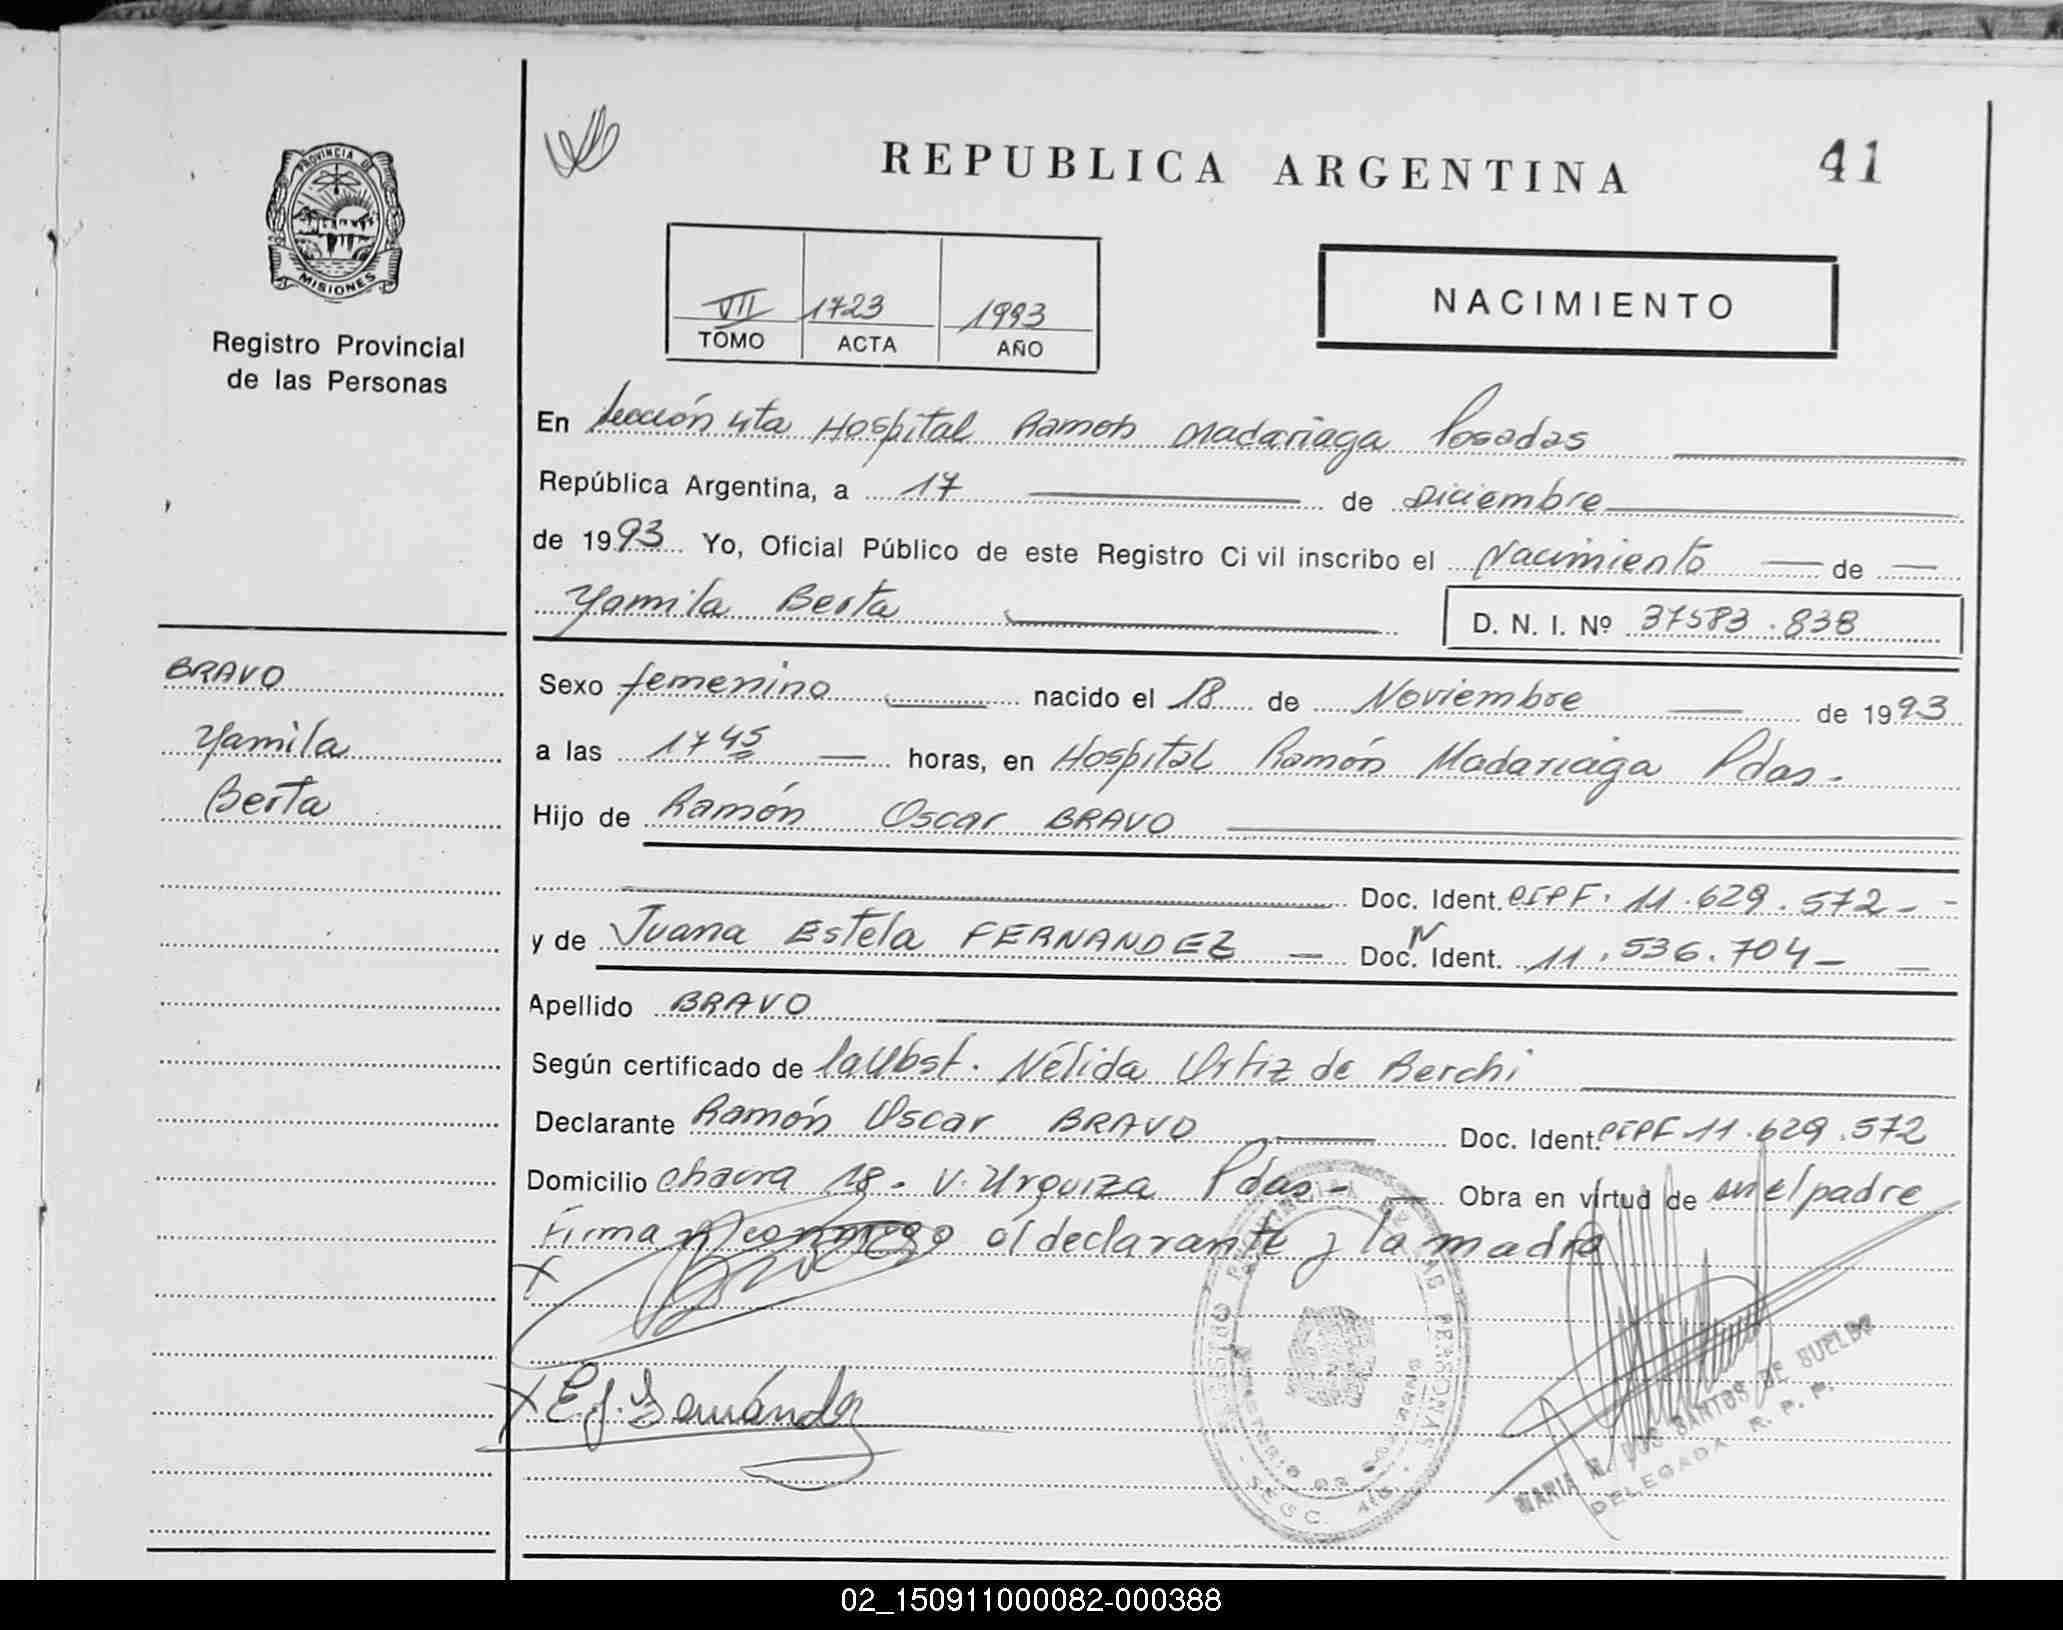 REPUBLICA ARGENTINA
41
PROVINCIA DE
MISIONES
Registro Provincial
de las Personas
VII 1723 1993
TOMO ACTA AÑO
NACIMIENTO
En Sección 4ta Hospital Ramón Madariaga Posadas
República Argentina, a 17 de Diciembre
de 1993 Yo, Oficial Público de este Registro Civil inscribo el Nacimiento de
Yamila Berta
D. N. I. Nº 37583.838
BRAVO
Yamila
Berta
Sexo femenino nacido el 18 de Noviembre de 1993
a las 1745 horas, en Hospital Ramón Madariaga Pdas-
Hijo de Ramón Oscar BRAVO
Doc. Ident. CIPF. 11.629.572-
y de Juana Estela FERNANDEZ Doc. Ident. 11.536.704-
Apellido BRAVO
Según certificado de la Obst. Nélida Ortiz de Berchi
Declarante Ramón Oscar BRAVO Doc. Ident. CIPF 11.629.572
Domicilio chacra 18. V. Urquiza Pdas- Obra en virtud de ser el padre
Firman conmigo el declarante y la madre
MARIA DOS SANTOS DE SUELDO
DELEGADA R. P. P.
02_150911000082-000388